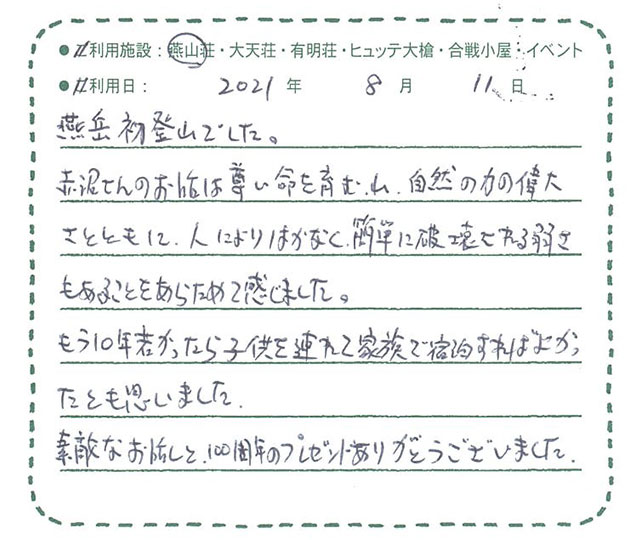 ●ご利用施設：燕山荘・大天荘・有明荘・ヒュッテ大槍・合戦小屋・イベント
●ご利用日： 2021 年 8 月 11 日
燕岳初登山でした。
赤沼さんのお話は尊い命を育む山、自然の力の偉大
さとともに、人によりはかなく、簡単に破壊される弱さ
もあることをあらためて感じました。
もう10年若かったら子供を連れて家族で宿泊すればよかっ
たとも思いました。
素敵なお話しと、100周年のプレゼントありがとうございました。